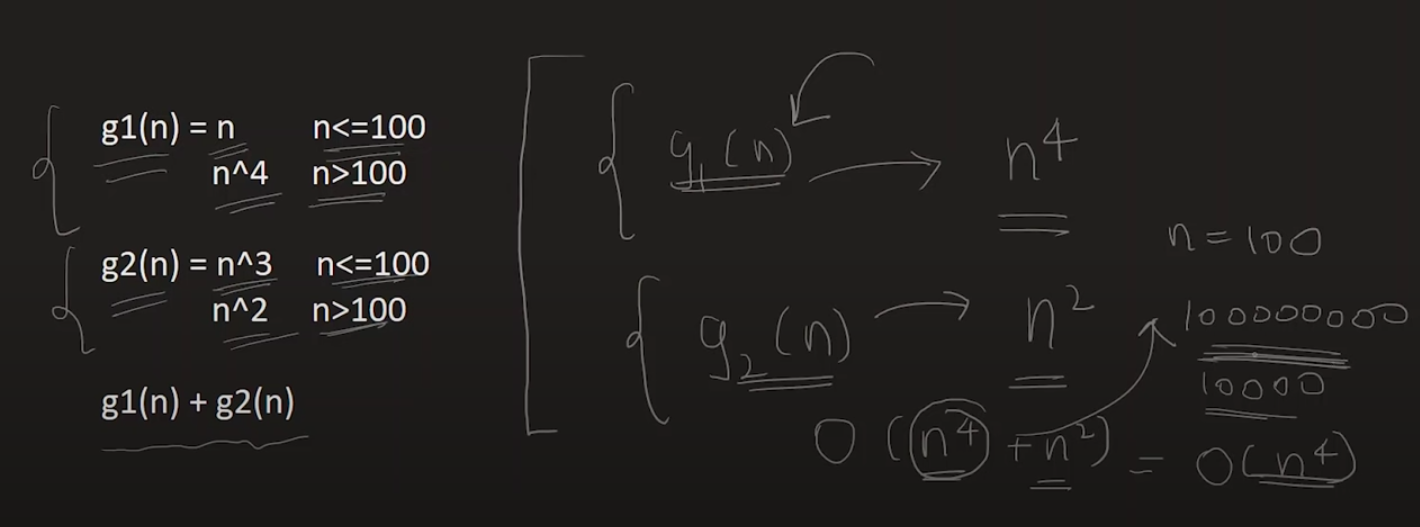 g1(n) = n n<=100
n^4 n>100
g2(n) = n^3 n<=100
n^2 n>100
g1(n) + g2(n)
g₁(n) → n⁴
g₂(n) → n²
n = 100
100000000
10000
O(n⁴ + n²) = O(n⁴)